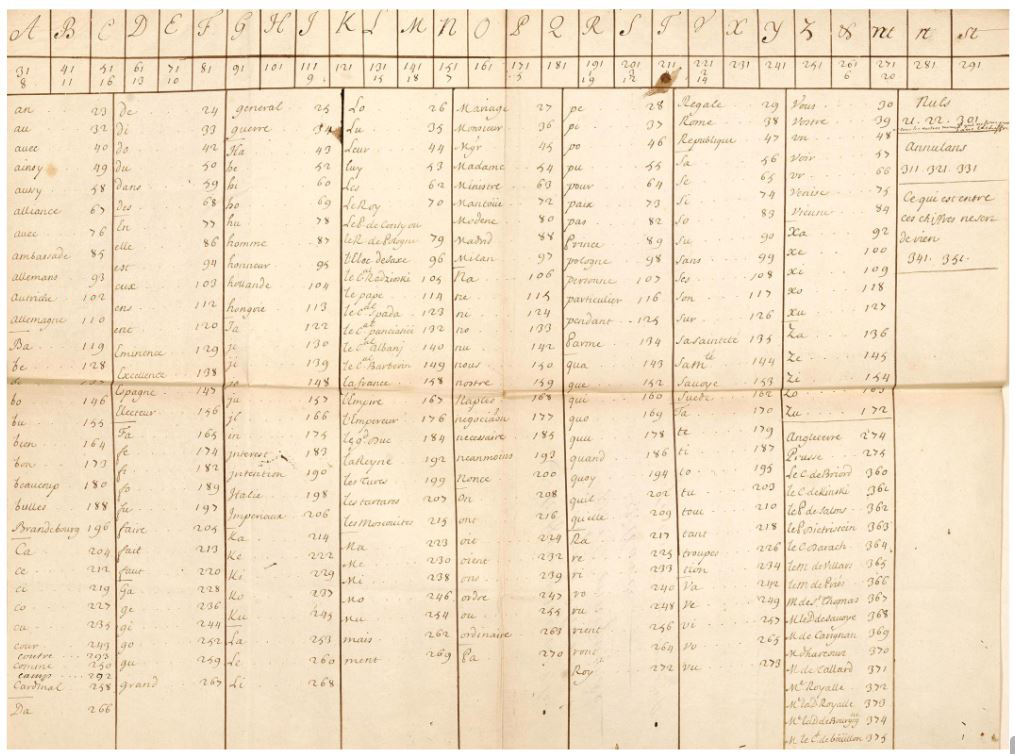 A B C D E F G H I K L M N O P Q R S T V X Y Z & nt rt st
31 41 51 61 71 81 91 101 111 121 131 141 151 161 171 181 191 201 211 221 231 241 251 261 271 281 291
8 11 16 13 10 9 15 18 7 5 19 12 14 6 20
an 23
au 32
avec 40
ainsy 49
aussy 58
alliance 67
avec 76
ambassade 85
allemans 93
autriche 102
allemagne 110
Ba 119
be 128
bo 146
bu 155
bien 164
bon 173
beaucoup 180
bulles 188
Brandebourg 196
Ca 204
ce 212
ci 219
co 227
cu 235
cour 243
contre 293
comme 250
camp 292
Cardinal 258
Da 266
de 24
di 33
do 42
du 50
dans 59
des 68
En 77
elle 86
est 94
eux 103
ens 112
ent 120
Eminence 129
Excellence 138
Espagne 147
Electeur 156
Fa 165
fe 174
fi 182
fo 189
fu 197
faire 205
fait 213
faut 220
Ga 228
ge 236
gi 244
go 252
gu 259
grand 267
general 25
guerre 34
Ha 43
he 52
hi 60
ho 69
hu 78
homme 87
honneur 95
hollande 104
hongrie 113
Ja 122
je 130
ji 139
jo 148
ju 157
jl 166
in 175
jnterest 183
jntention 190
Italie 198
Imperiaux 206
Ka 214
Ke 222
Ki 229
Ko 237
Ku 245
La 253
Le 260
Li 268
Lo 26
Lu 35
Leur 44
luy 53
Les 62
Le Roy 70
Le P. de Conty ou
le R. de Pologne 79
l'Elec. de Saxe 96
le C. Radzioski 105
le pape 114
le C.al Spada 123
le C.al panciatici 132
le C.al Albanj 140
le C.al Barberin 149
la france 158
l'Empire 167
l'Empereur 176
le g.d Duc 184
la Reyne 192
les Turcs 199
les tartares 207
les Moscovites 215
Ma 223
Me 230
Mi 238
Mo 246
Mu 254
mais 262
ment 269
Mariage 27
Monsieur 36
Mgr 45
Madame 54
Ministre 63
Mantoüe 72
Modene 80
Madrid 88
Milan 97
Na 106
ne 115
ni 124
no 133
nu 142
nous 150
nostre 159
Naples 168
negociaon 177
necessaire 185
neanmoins 193
Nonce 200
On 208
ont 216
oit 224
oient 232
ons 239
ordre 247
ou 255
ordinaire 263
Pa 270
pe 28
pi 37
po 46
pu 55
pour 64
paix 73
pas 82
Prince 89
pologne 98
personne 107
particulier 116
pendant 125
Parme 134
qua 143
que 152
qui 160
quo 169
quu 178
quand 186
quoy 194
quil 201
quelle 209
Ra 217
re 225
ri 233
ro 240
ru 248
rient 256
ront 264
Roy 272
Regale 29
Rome 38
Republique 47
Sa 56
Se 65
Si 74
So 83
Su 90
Sans 99
Ses 108
Son 117
Sur 126
Sa Sainteté 135
Sa M.té 144
Savoye 153
Suede 162
Ta 170
te 179
ti 187
to 195
tu 203
tout 210
tant 218
troupes 226
tion 234
Va 242
Ve 249
Vi 257
Vo 265
Vu 273
Vous 30
Vostre 39
vn 48
Voir 57
vr 66
Venise 75
Vienne 84
Xa 92
xe 100
xi 109
xo 118
xu 127
Za 136
Ze 145
Zi 154
Zo 163
Zu 172
Angleterre 274
Prusse 275
Le C. de Briord 360
le C. de Kinski 361
le P. de Salms 362
le P. Dietristein 363
le C. Barach 364
le m. de Villars 365
le m. de Prié 366
M. de S.t Thomas 367
M. le D. de Savoye 368
M. de Carignan 369
M. d'harcour 370
M. de Tallard 371
M.e Royalle 372
M.e la D. Royalle 373
M.e la D. de Bourg.ne 374
M. le C. de boüillon 375
Nuls
21. 22. 301.
Annulans
311. 321. 331
Ce qui est entre
ces chiffres ne sert
de rien
341. 351.